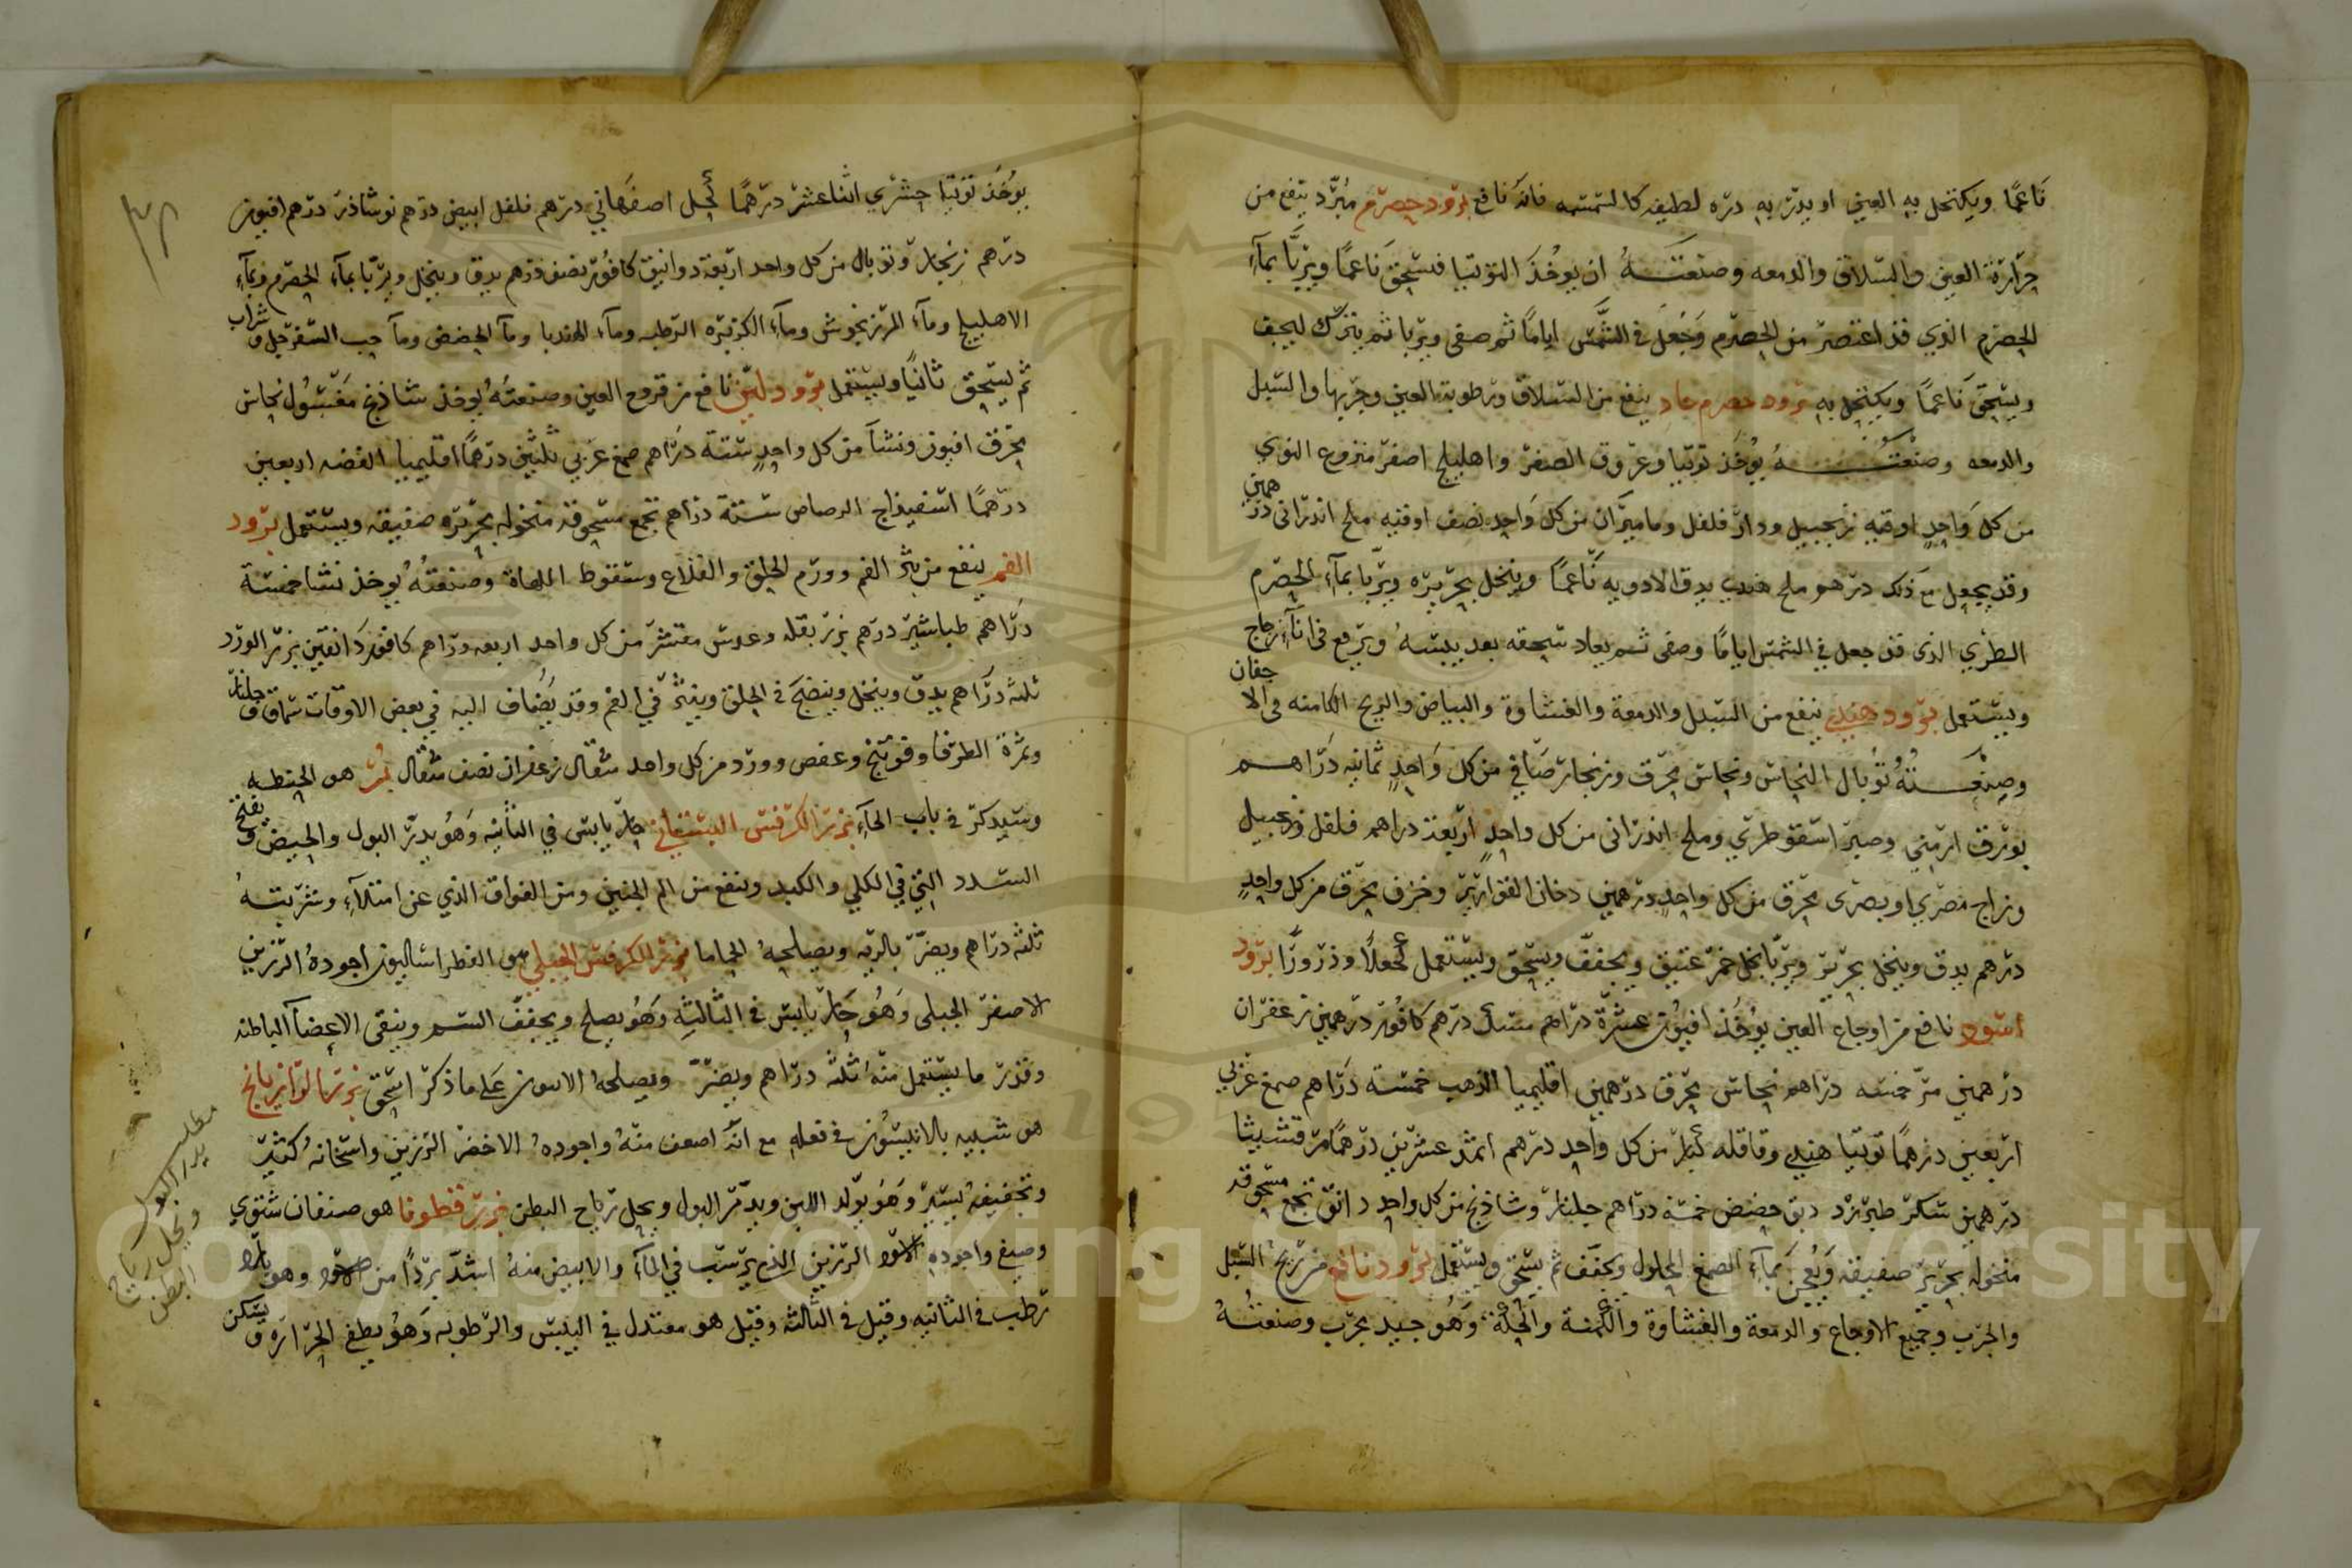 ناعمًا ويكتحل به العين او يدر به دره لطيفه كالسمسمه فانه نافع برود حصرم مبرد ينفع من
حرارة العين والسلاق والدمعه وصنعته ان يوخذ التوتيا فتسحق ناعمًا ويربا بمآء
الحصرم الذي قد اعتصر من الحصرم وجعل في الشمس ايامًا ثم صفى ويربا ثم يترك ليجف
ويسحق ناعمًا ويكتحل به برود حصرم حاد ينفع من السلاق ورطوبة العين وجربها والسبل
والدمعه وصنعته يوخذ توتيا وعروق الصفر واهليلج اصفر منزوع النوي
من كل واحد اوقيه زنجبيل ودار فلفل وماميران من كل واحد نصف اوقيه ملح اندراني درهمين
وقد يجعل مع ذلك درهو ملح هندي يدق الادويه ناعمًا وينخل بحريره ويربا بمآء الحصرم
الطري الذي قد جعل في الشمس ايامًا وصفى ثم يعاد سحقه بعد يبسه ويرفع في انآء زجاج
ويستعمل برود هندي ينفع من السبل والدمعة والغشاوة والبياض والريح الكامنه في الاجفان
وصنعته توبال النحاس ونحاس محرق وزنجار صافي من كل واحد ثمانيه دراهم
بورق ارمني وصبر اسقوطري وملح اندراني من كل واحد اربعة دراهم فلفل وزنجبيل
وزاج مصري او بصرى محرق من كل واحد درهمين دخان القوارير وخزف محرق من كل واحد
درهم يدق وينخل بحرير ويربا بخل خمر عتيق ويجفف ويسحق ويستعمل كحلا وذرورًا برود
اسود نافع من اوجاع العين يوخذ افيون عشرة دراهم سنبل درهم كافور درهمين زعفران
درهمين مر خمسه دراهم نحاس محرق درهمين اقليميا الذهب خمسة دراهم صمغ عربي
اربعين درهمًا توتيا هندي وقاقله كبار من كل واحد درهم اثمد عشرين درهمًا مرقشيثا
درهمين سكر طبرزد دبق حضض خمسة دراهم جلنار وشاذنج من كل واحد دانق تجمع مسحوقه
منخوله بحرير صفيقه ويعجن بمآء الصمغ المحلول ويجفف ثم يسحق ويستعمل برود نافع من ريح السبل
والجرب وجميع الاوجاع والدمعة والغشاوة والكمنة والحكة وهو جيد مجرب وصنعته
يوخذ توتيا حشري اثنا عشر درهمًا كحل اصفهاني درهم فلفل ابيض درهم نوشاذر درهم افيون
درهم زنجار وتوبال من كل واحد اربعة دوانيق كافور نصف درهم يدق وينخل ويربا بمآء الحصرم وبمآء
الاهليلج ومآء المرزنجوش ومآء الكزبره الرطبه ومآء الهندبا ومآ الحضض ومآ حب السفرجل وشراب
ثم يسحق ثانيًا ويستعمل برود لين نافع من قروح العين وصنعته يوخذ شاذنج مغسول نحاس
محرق افيون ونشا من كل واحد ستة دراهم صمغ عربي ثلثين درهمًا اقليميا الفضه اربعين
درهمًا اسفيذاج الرصاص ستة دراهم تجمع مسحوقه منخوله بحريره صفيقه ويستعمل برود
الفم ينفع من بثر الفم وورم الحلق والقلاع وسقوط اللهاة وصنعته يوخذ نشا خمسة
دراهم طباشير درهم بزر بقله وعدس مقشر من كل واحد اربعه دراهم كافور دانقين بزر الورد
ثلثه دراهم يدق وينخل وينضج في الحلق وينثر في الفم وقد يضاف اليه في بعض الاوقات سماق وجلنار
وثمرة الطرفا وفوتنج وعفص وورد من كل واحد مثقال زعفران نصف مثقال بر هو الحنطه
وسيذكر في باب الحآء بزر الكرفس البستاني حار يابس في الثانيه وهو يدر البول والحيض ويفتح
السدد التي في الكلي والكبد وينفع من الم الجنبين ومن الفواق الذي عن امتلآء وشربته
ثلثه دراهم ويضر بالريه ويصلحه الحماما بزر الكرفس الجبلي هو الفطراساليون اجوده الرزين
الاصفر الجبلى وهو حار يابس في الثالثه وهو يصلح ويجفف السم وينقى الاعضآ الباطنه
وقدر ما يستعمل منه ثلثه دراهم ويضر ويصلحه الاسون على ما ذكر اسحق بزر الرازيانج
هو شبيه بالانيسون في فعله مع انه اضعف منه واجوده الاخضر الرزين واسخانه كثير
وتجفيفه يسير وهو يولد اللبن ويدر البول ويحل رياح البطن بزر قطونا هو صنفان شتوي
وصيفي واجوده الاسود الرزين الذي يرسب في المآء والابيض منه اشد بردًا من الاسود وهو بارد
رطب في الثانيه وقيل في الثالثه وقيل هو معتدل في اليبس والرطوبه وهو يطفي الحراره ويسكن
مطلب
يدر البول
ويحل رياح
البطن
Copyright © King Saud University